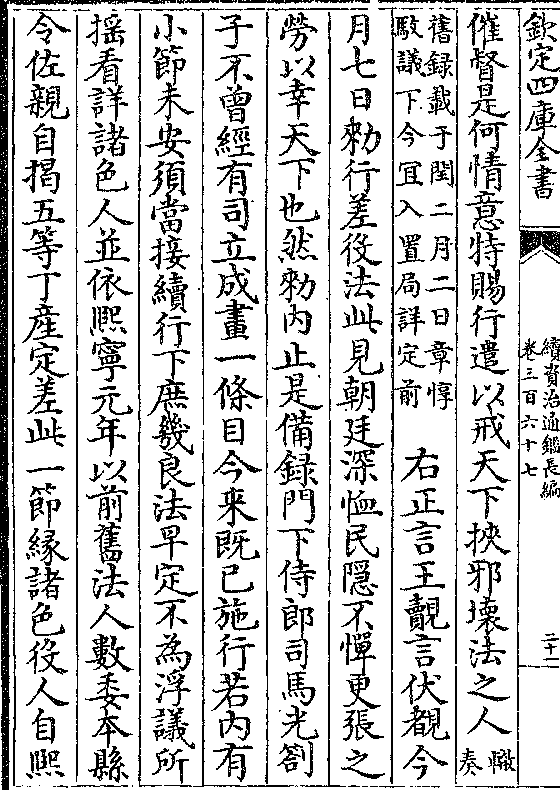 欽定四庫全書
續資治通鑑長編
卷三百六十七
三十一
催督是何情意特賜行遣以戒天下挾邪壞法之人轍奏
舊録載于閏二月二日章惇
駮議下今冝入置局詳定前
右正言王覿言伏覩今
月七日勑行差役法此見朝廷深恤民隠不憚更張之
勞以幸天下也然勑内止是備録門下侍郎司馬光劄
子不曾經有司立成畫一條目今來既已施行若内有
小節未安須當接續行下庶幾良法早定不為浮議所
揺看詳諸色人並依熙寧元年以前舊法人數委本縣
令佐親自揭五等丁産定差此一節縁諸色役人自熙